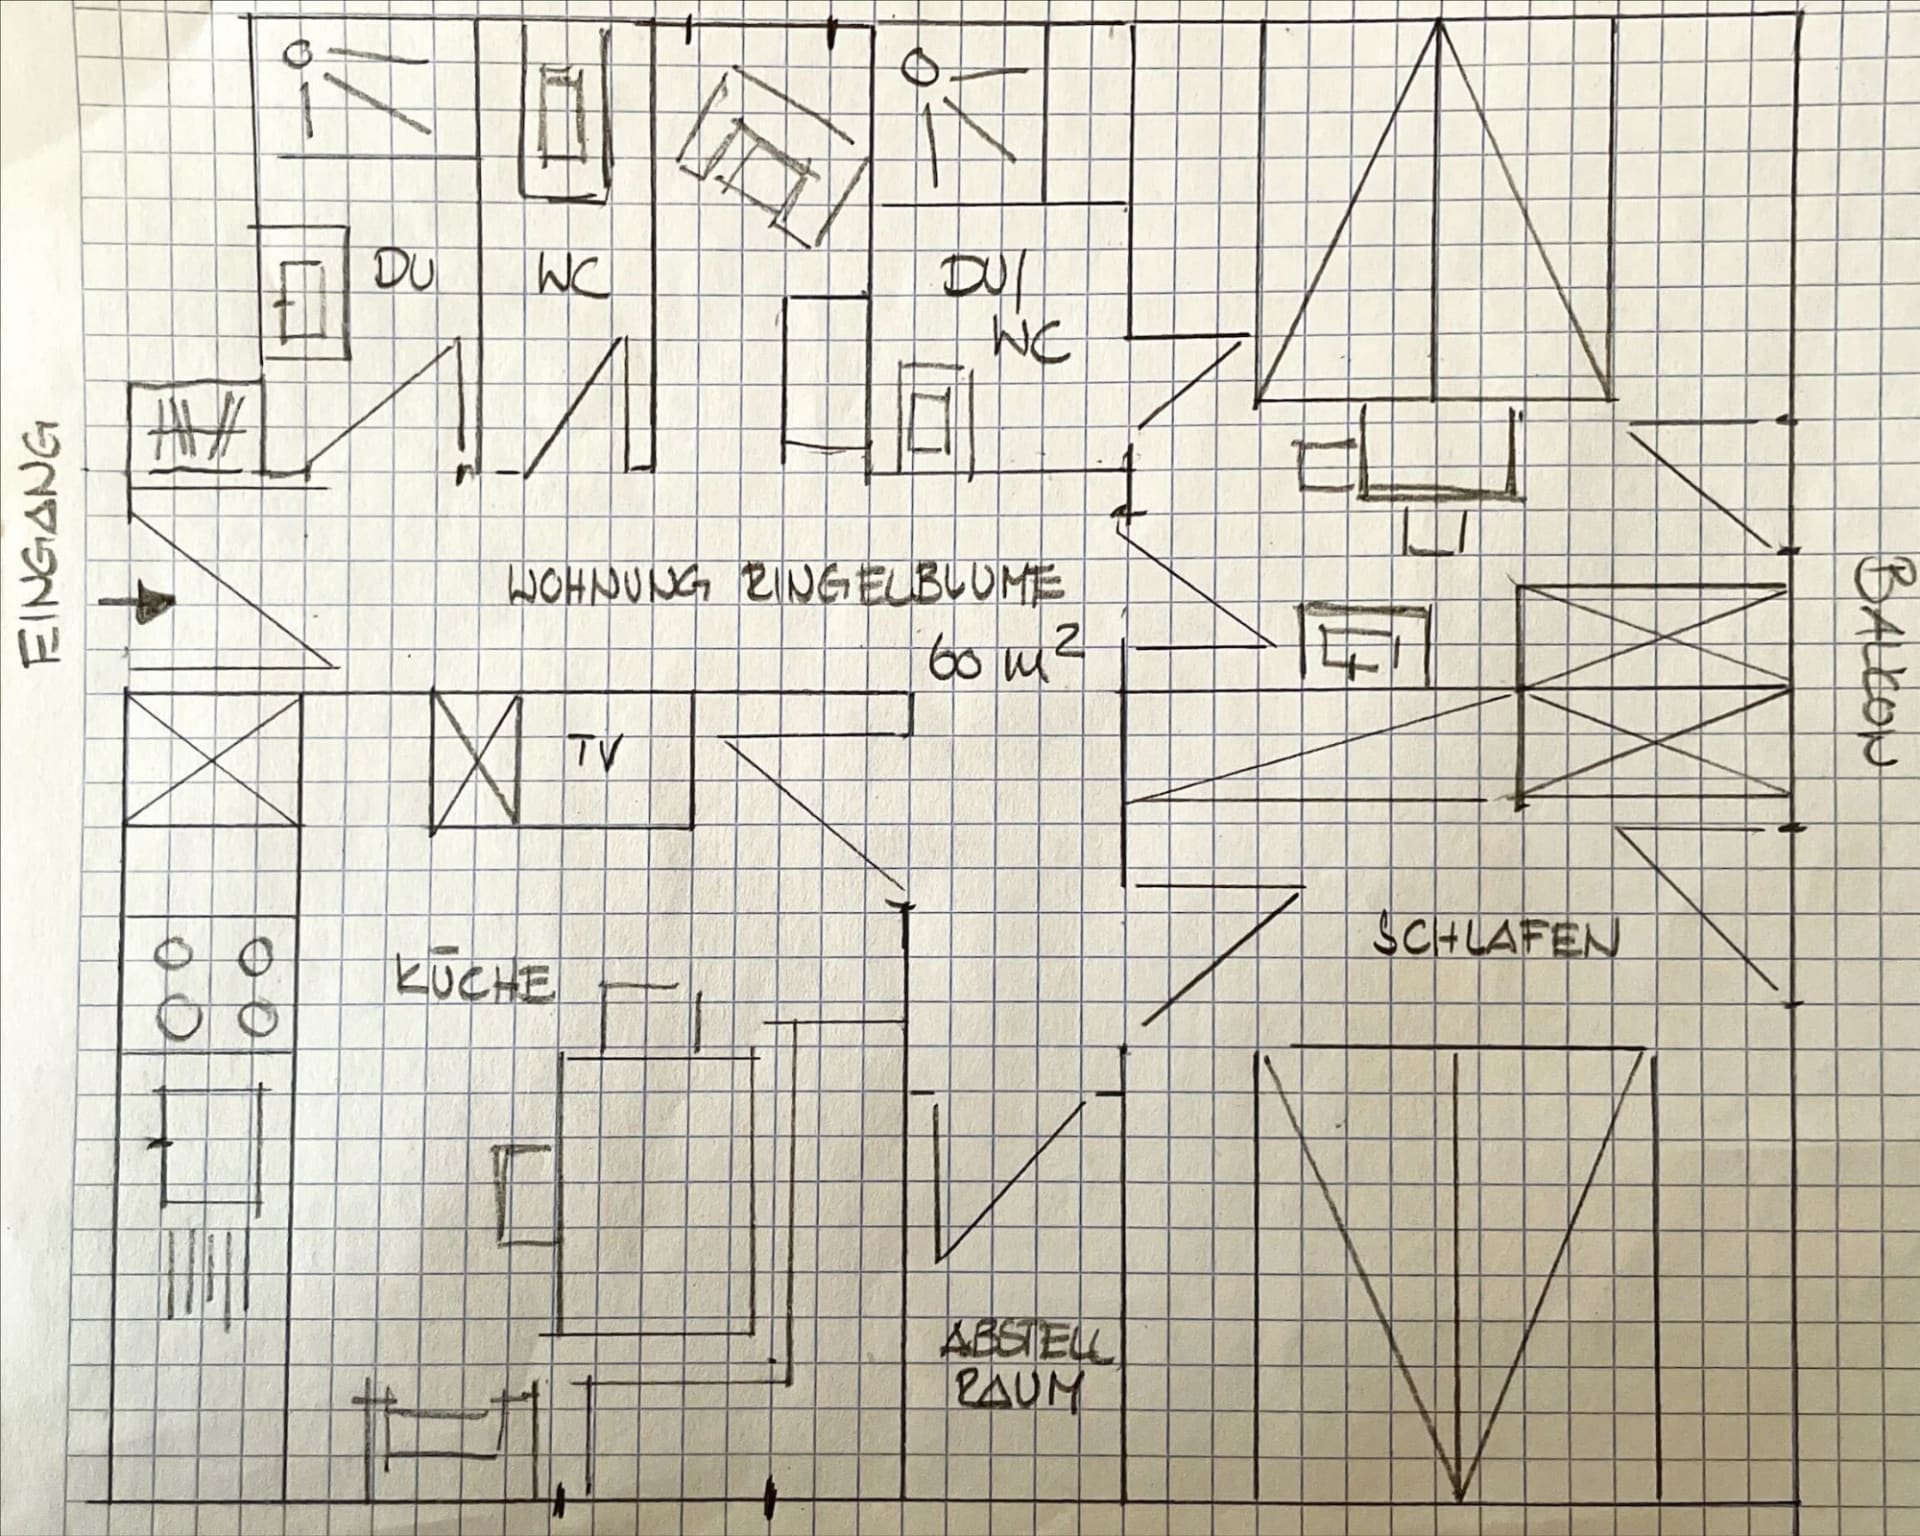 DU
WC
DU/
WC
EINGANG
WOHNUNG RINGELBLUME
60 m²
BALKON
TV
KÜCHE
SCHLAFEN
ABSTELL
RAUM